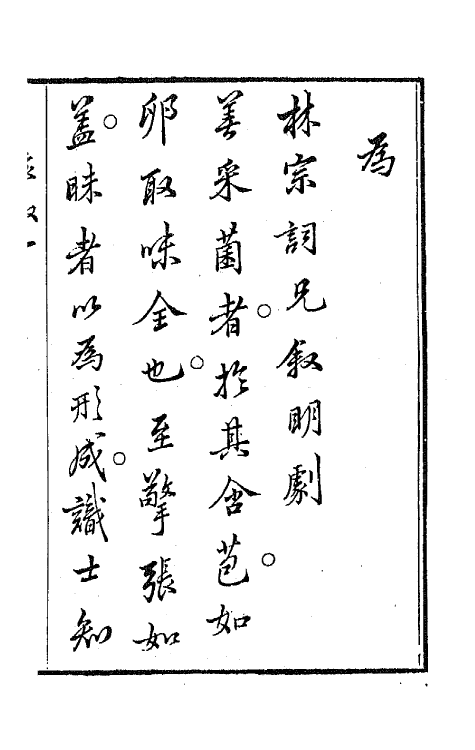 為
林宗詞兄叙明劇
善采菌者。於其含苞。如
卵取味全也。至擎張如
蓋。昧者以為形成。識士知